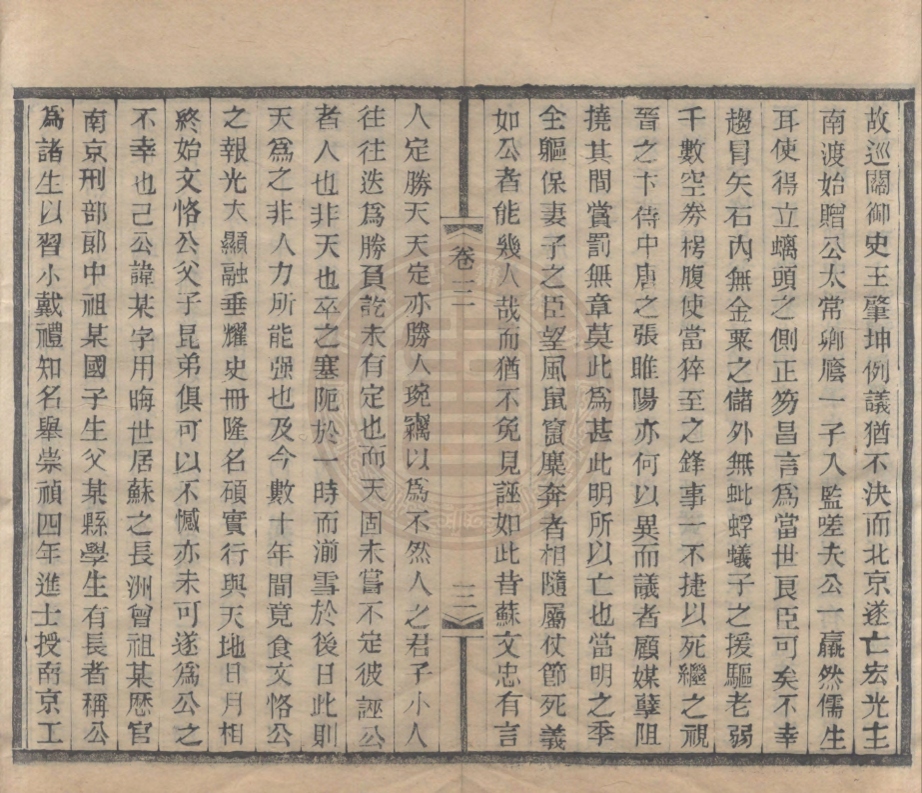 故巡關御史王肇坤例議猶不決而北京遂亡宏光主
南渡始贈公太常卿廕一子入監嗟夫公一羸然儒生
耳使得立螭頭之側正笏昌言爲當世良臣可矣不幸
趨冒矢石內無金粟之儲外無蚍蜉蟻子之援驅老弱
千數空劵楞腹使當猝至之鋒事一不捷以死繼之視
晉之卞侍中唐之張睢陽亦何以異而議者顧媒孽阻
撓其間賞罰無章莫此爲甚此明所以亡也當明之季
全軀保妻子之臣望風鼠竄麋奔者相隨屬仗節死義
如公者能幾人哉而猶不免見誣如此昔蘇文忠有言
卷三
三
人定勝天天定亦勝人琬竊以爲不然人之君子小人
往往迭爲勝負訖未有定也而天固未嘗不定彼誣公
者人也非天也卒之塞阨於一時而湔雪於後日此則
天爲之非人力所能强也及今數十年間竟食文恪公
之報光大顯融垂耀史冊隆名碩實行與天地日月相
終始文恪公父子昆弟俱可以不憾亦未可遂爲公之
不幸也己公諱某字用晦世居蘇之長洲曾祖某歷官
南京刑部郞中祖某國子生父某縣學生有長者稱公
爲諸生以習小戴禮知名舉崇禎四年進士授南京工